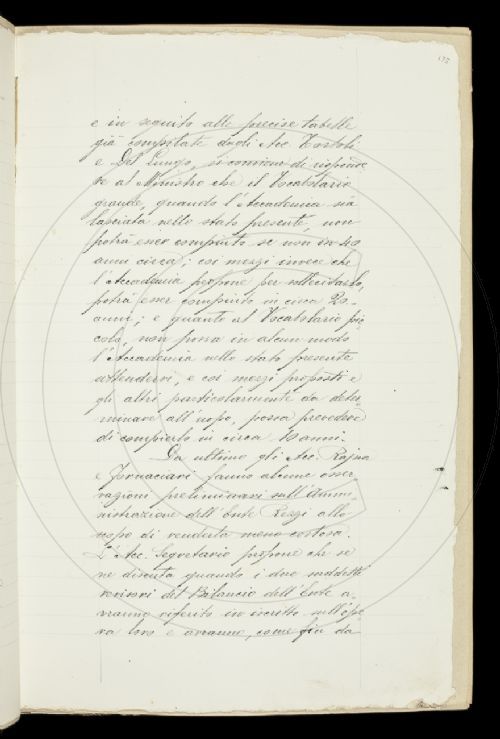 e in seguito alle precise tabelle
già compilate dagli Acc. Tortoli
e Del Lungo, si conviene di rispónde
re al Ministro che il Vocabolario
grande, quando l'Accademia sia
lasciata nello stato presente, non
potrà esser compiuto se non in 40
anni circa; coi mezzi invece che
l'Accademia propone per sollecitarlo,
potrà esser compiuto in circa 20
anni; e quanto al Vocabolario pic
colo, non possa in alcun modo
l'Accademia nello stato presente
attendervi, e coi mezzi proposti e
gli altri particolarmente da deter-
minare all'uopo, possa prevedersi
di compierlo in circa 10 anni.
Da ultimo gli Acc. Rajna
e Fornaciari fanno alcune osser
vazioni preliminari sull'Ammi-
nistrazione dell'Ente Rezzi allo
scopo di renderla meno costosa.
L'Acc. Segretario propone che se
ne discuta quando i due suddetti
revisori del Bilancio dell'Ente a-
vranno riferito in iscritto sull'ope
ra loro e avranno, come fin da